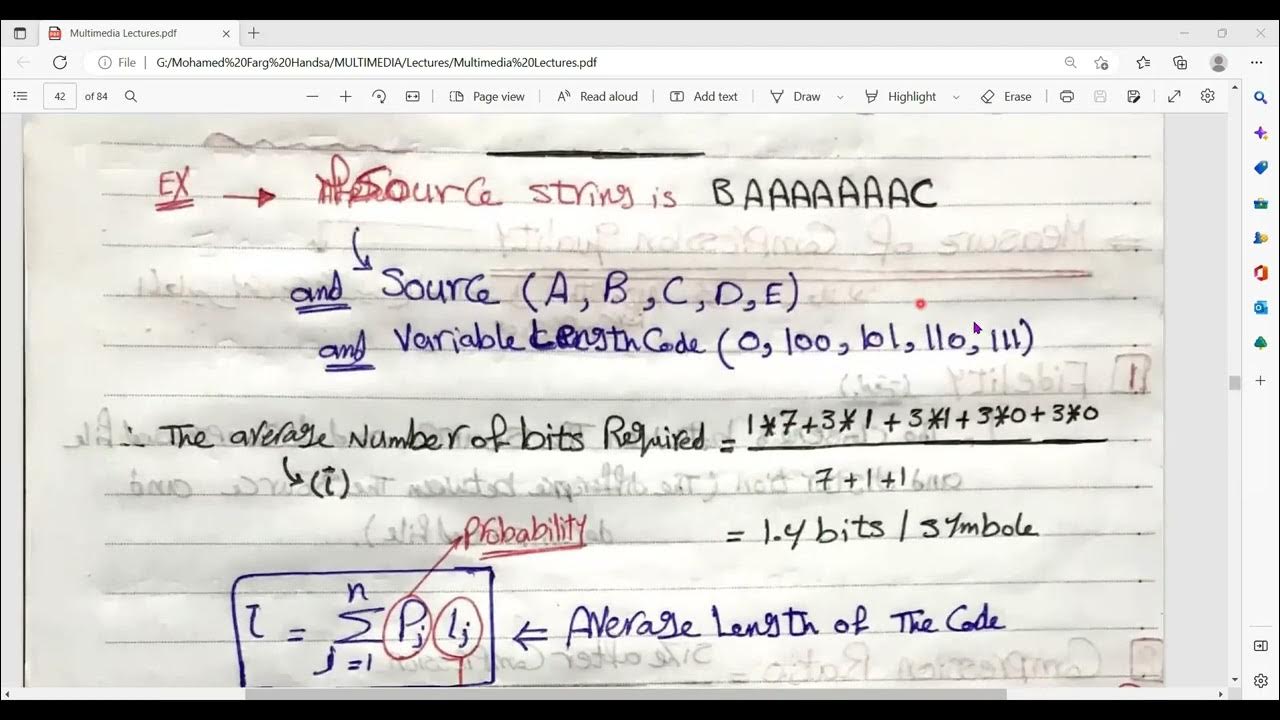 Multimedia Lectures.pdf
File G:/Mohamed%20Farg%20Handsa/MULTIMEDIA/Lectures/Multimedia%20Lectures.pdf
42 of 84 Page view Read aloud Add text Draw Highlight Erase
EX → Source string is BAAAAAAAC
and Source (A, B, C, D, E)
and Variable Length Code (0, 100, 101, 110, 111)
∴ The average Number of bits Required = 1*7+3*1+3*1+3*0+3*0
(l̄) 7+1+1
Probability = 1.4 bits / symbole
l = n∑j=1 Pj lj ⇐ Average Length of The Code